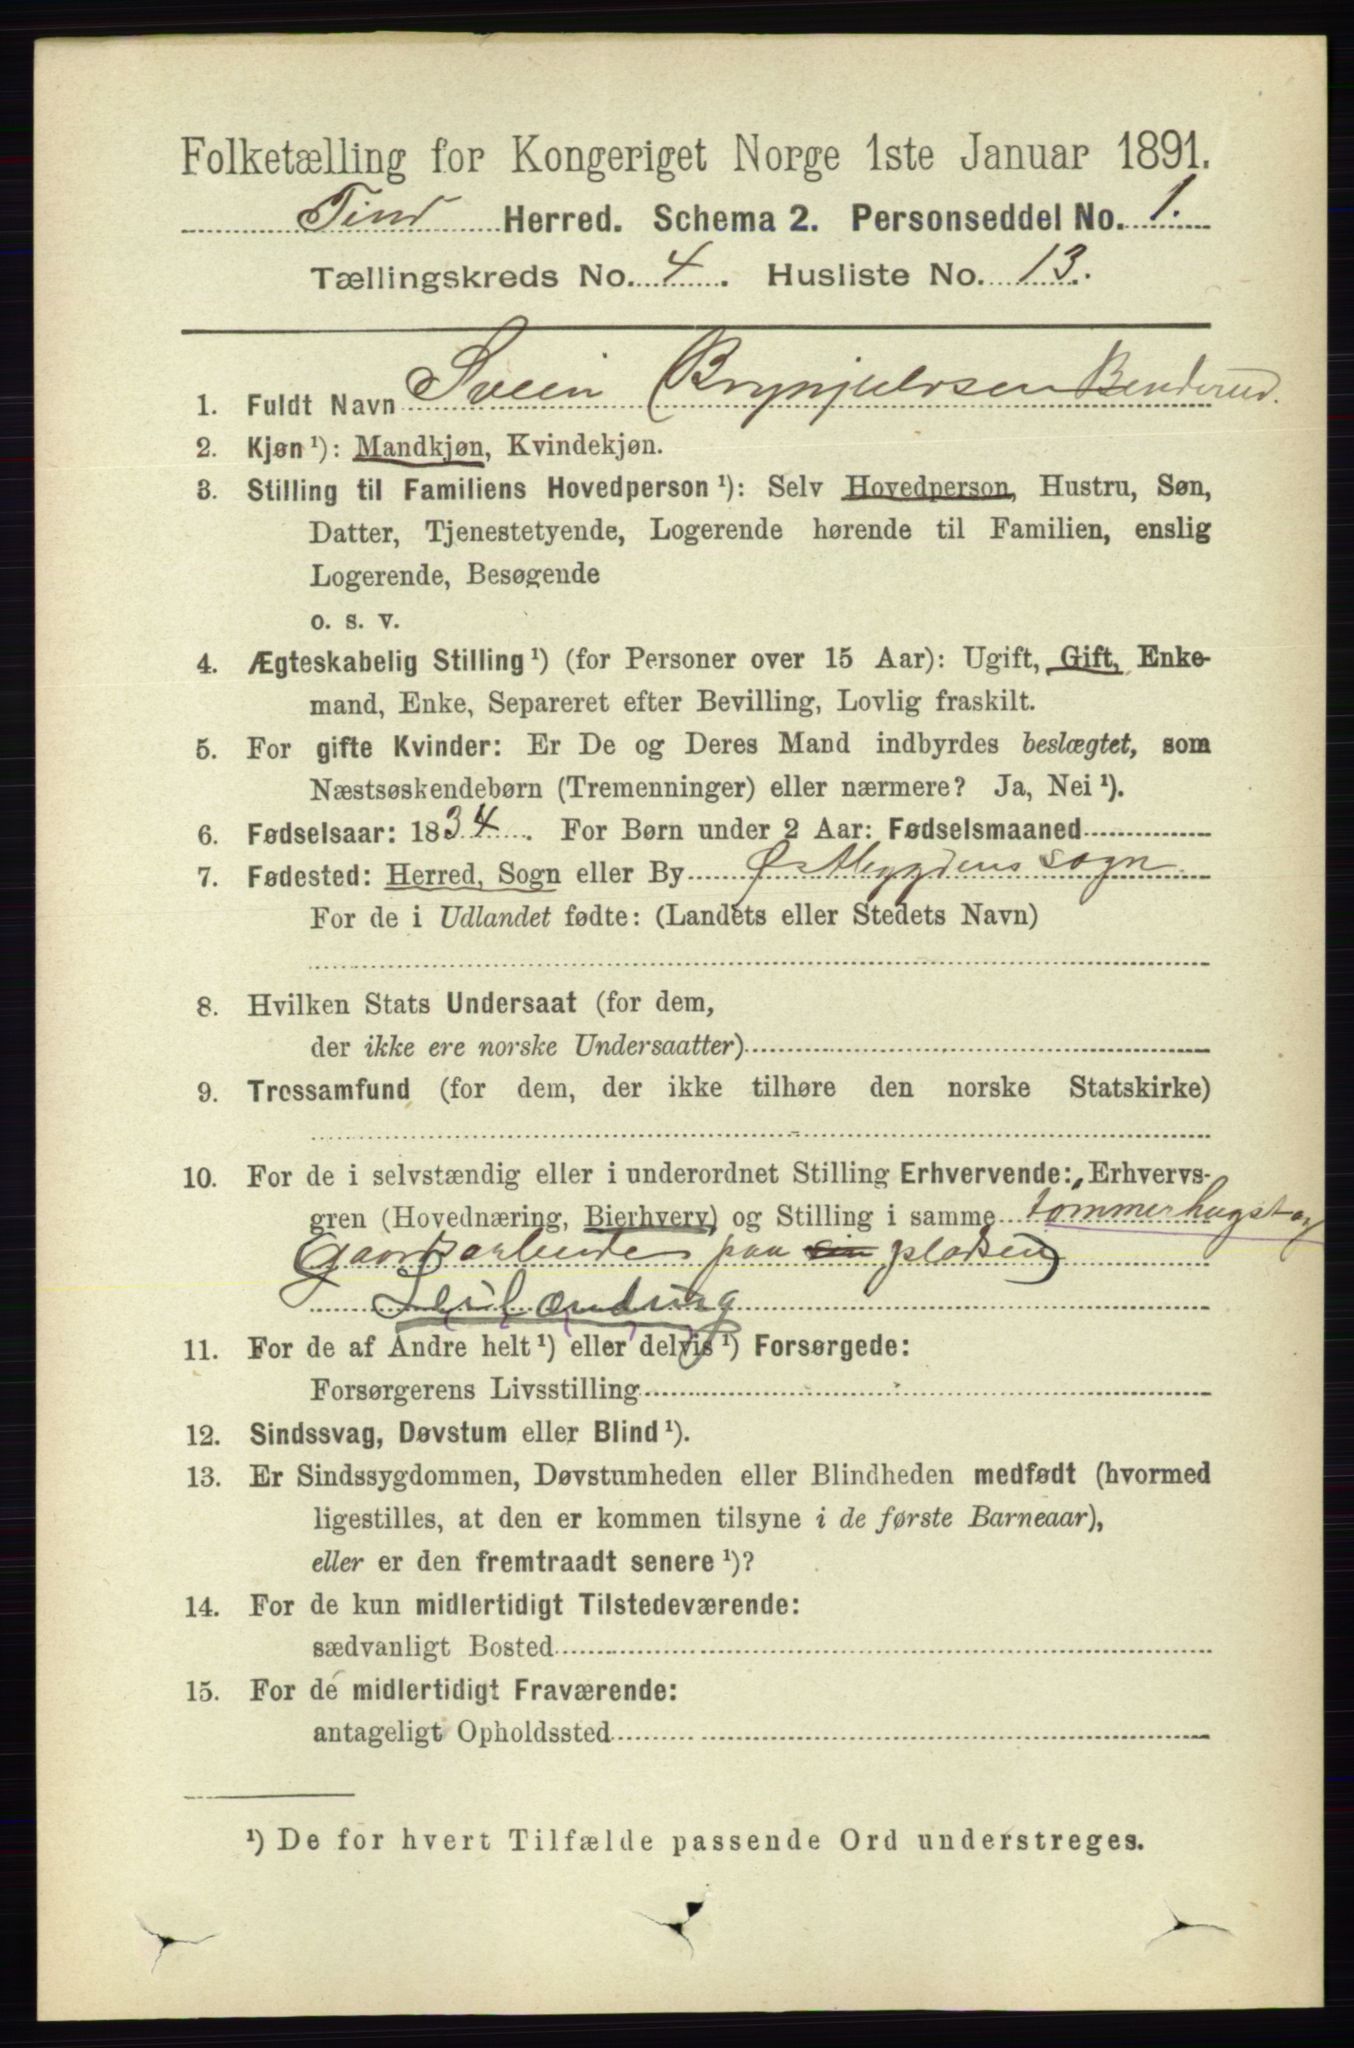 Folketælling for Kongeriget Norge 1ste Januar 1891.
Tind Herred. Schema 2. Personseddel No. 1.
Tællingskreds No. 4. Husliste No. 13.
1. Fuldt Navn Svein Brynjulvsen Benderud.
2. Kjøn ¹): Mandkjøn, Kvindekjøn.
3. Stilling til Familiens Hovedperson ¹): Selv Hovedperson, Hustru, Søn,
Datter, Tjenestetyende, Logerende hørende til Familien, enslig
Logerende, Besøgende
o. s. v.
4. Ægteskabelig Stilling ¹) (for Personer over 15 Aar): Ugift, Gift, Enke-
mand, Enke, Separeret efter Bevilling, Lovlig fraskilt.
5. For gifte Kvinder: Er De og Deres Mand indbyrdes beslægtet, som
Næstsøskendebørn (Tremenninger) eller nærmere? Ja, Nei ¹).
6. Fødselsaar: 1834. For Børn under 2 Aar: Fødselsmaaned
7. Fødested: Herred, Sogn eller By Østbygdens sogn
For de i Udlandet fødte: (Landets eller Stedets Navn)
8. Hvilken Stats Undersaat (for dem,
der ikke ere norske Undersaatter)
9. Trossamfund (for dem, der ikke tilhøre den norske Statskirke)
10. For de i selvstændig eller i underordnet Stilling Erhvervende: Erhvervs-
gren (Hovednæring, Bierhverv) og Stilling i samme tømmerhugst og
(gaardsarbeide paa sin pladsen)
Leilænding
11. For de af Andre helt ¹) eller delvis ¹) Forsørgede:
Forsørgerens Livsstilling
12. Sindssvag, Døvstum eller Blind ¹).
13. Er Sindssygdommen, Døvstumheden eller Blindheden medfødt (hvormed
ligestilles, at den er kommen tilsyne i de første Barneaar),
eller er den fremtraadt senere ¹)?
14. For de kun midlertidigt Tilstedeværende:
sædvanligt Bosted
15. For de midlertidigt Fraværende:
antageligt Opholdssted
¹) De for hvert Tilfælde passende Ord understreges.